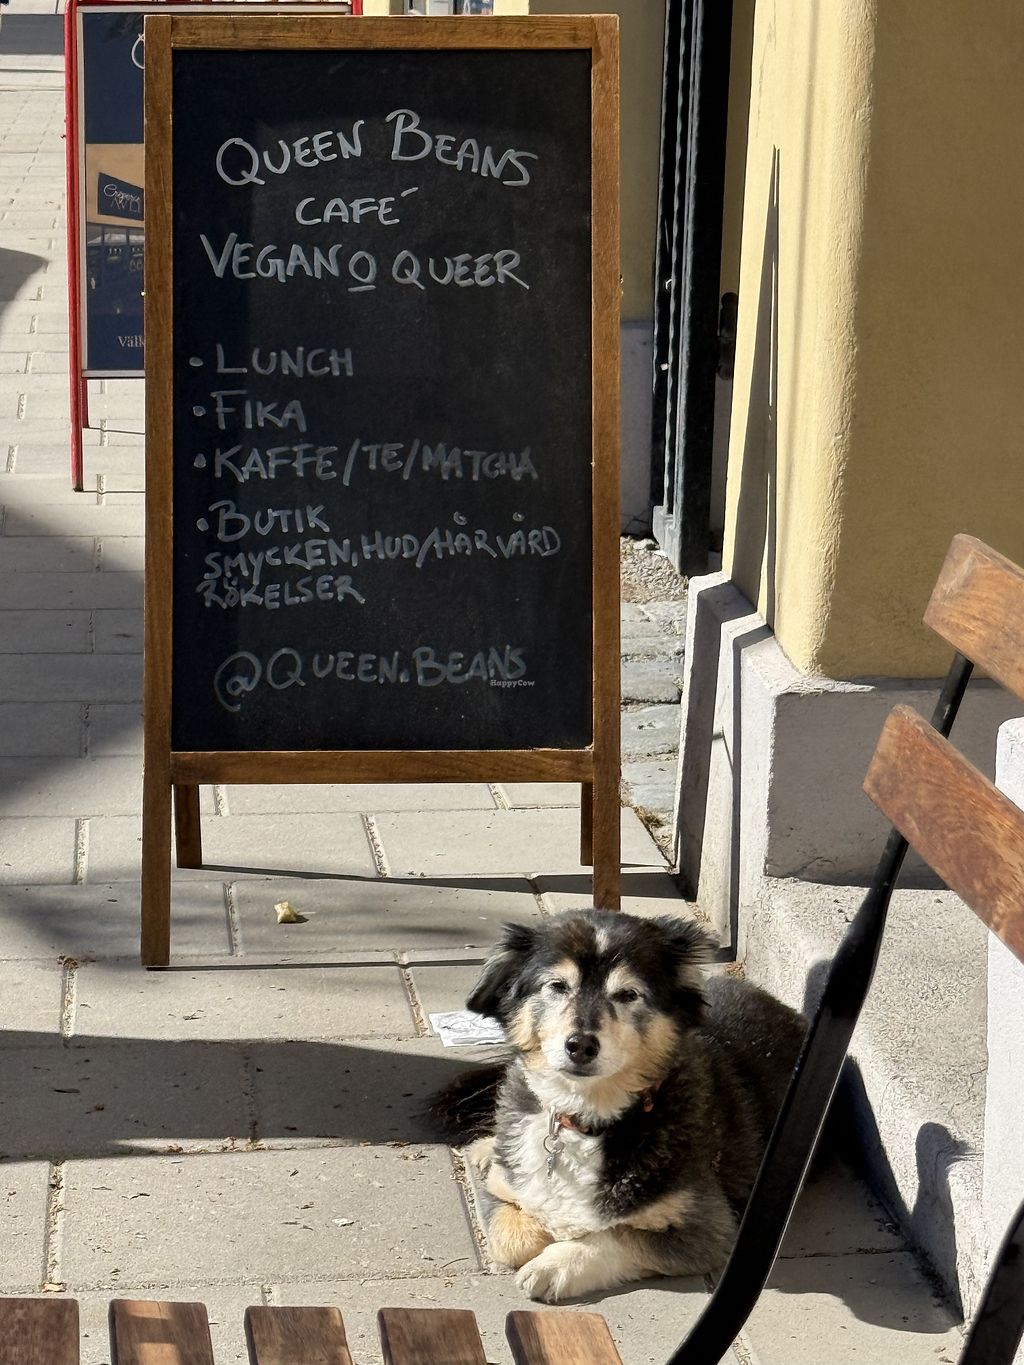 QUEEN BEANS
CAFÉ
VEGAN O QUEER
• LUNCH
• FIKA
• KAFFE/TE/MATCHA
• BUTIK
SMYCKEN, HUD/HÅRVÅRD
RÖKELSER
@QUEEN.BEANS
HappyCow
Välk